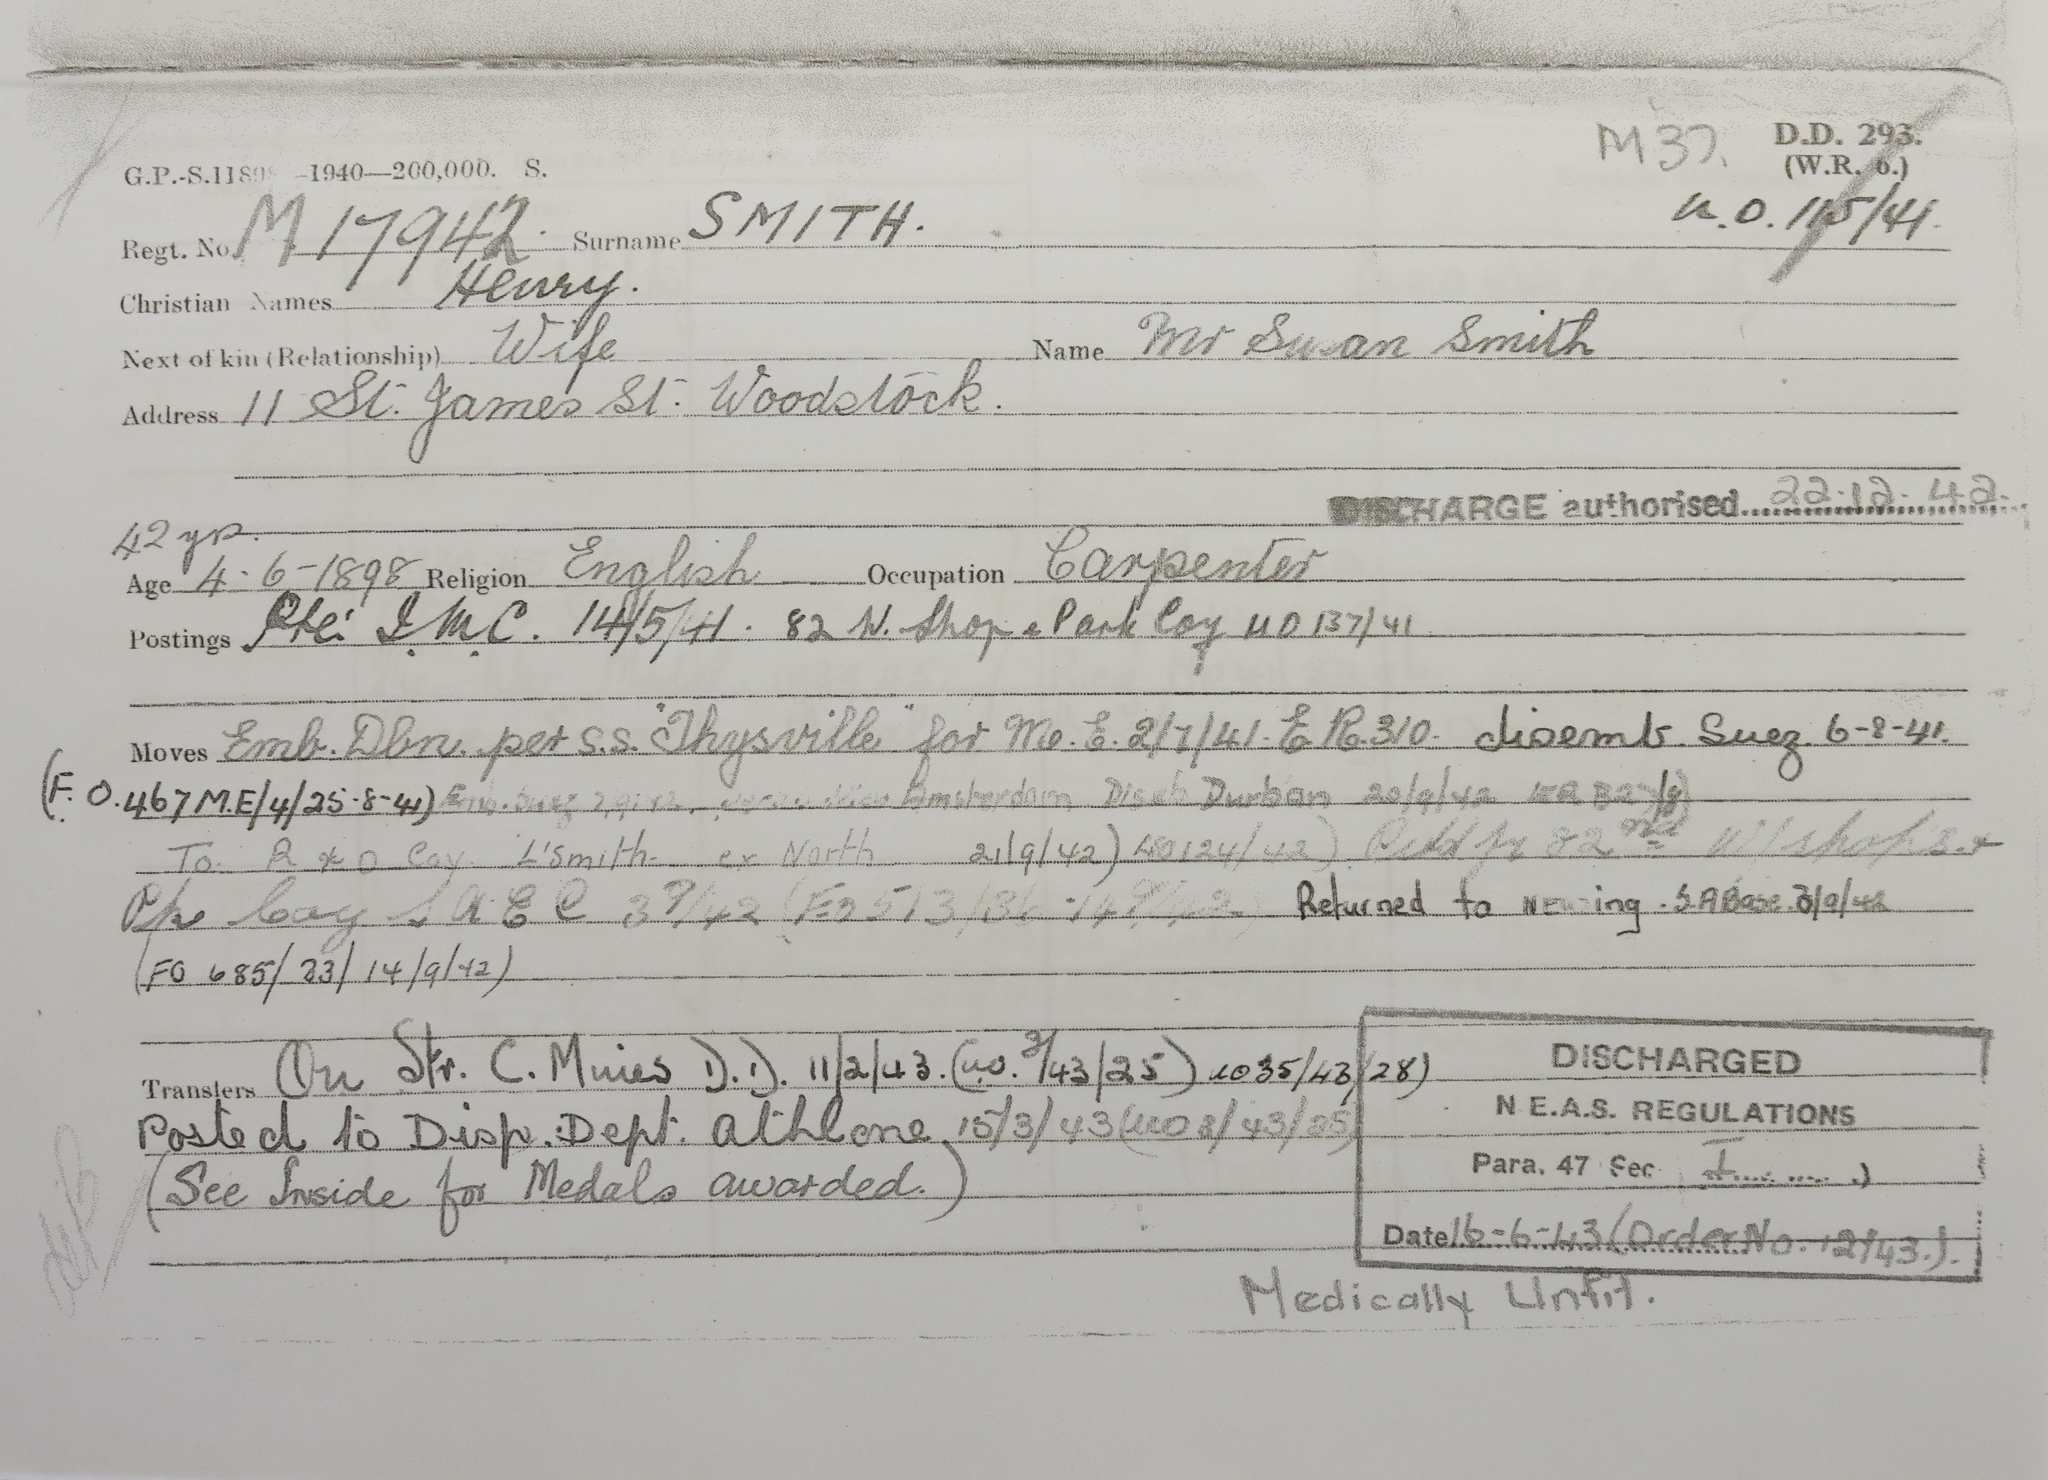 M 37. D.D. 293.
G.P.-S.11898 -1940—200,000. S. (W.R. 6.)
U.O. 115/41.
Regt. No. M 17942. Surname SMITH.
Christian Names Henry.
Next of kin (Relationship) Wife Name Mr Susan Smith
Address 11 St. James St. Woodstock.
DISCHARGE authorised 22.12.42.
42 yrs.
Age 4-6-1898 Religion English Occupation Carpenter
Postings Pte. I.M.C. 14/5/41. 82 W. Shop & Park Coy UO 137/41
Moves Emb. Dbn. per s.s. "Thysville" for M.E. 2/7/41. E.R. 310. disemb. Suez. 6-8-41.
(F.O. 467 M.E/4/25-8-41) Emb. Suez Amsterdam Disemb Durban 20/9/42
To R & D Coy L'Smith ex North 21/9/42) UO124/42) 82nd W/shops &
Pk Coy S A E C (FO 513/ Returned to ing. S.A Base. 3/9/42
(FO 685/23/14/9/42)
Transfers On Str. C. Muies D.D. 11/2/43. (uo. 2/43/25) uo 35/43/28)
Posted to Disp. Dept. Athlone. 15/3/43 (UO 2/43/25)
(See Inside for Medals awarded.)
DISCHARGED
N E.A.S. REGULATIONS
Para. 47 Sec I .)
Date 16-6-43 (Order No. 12/43.).
Medically Unfit.